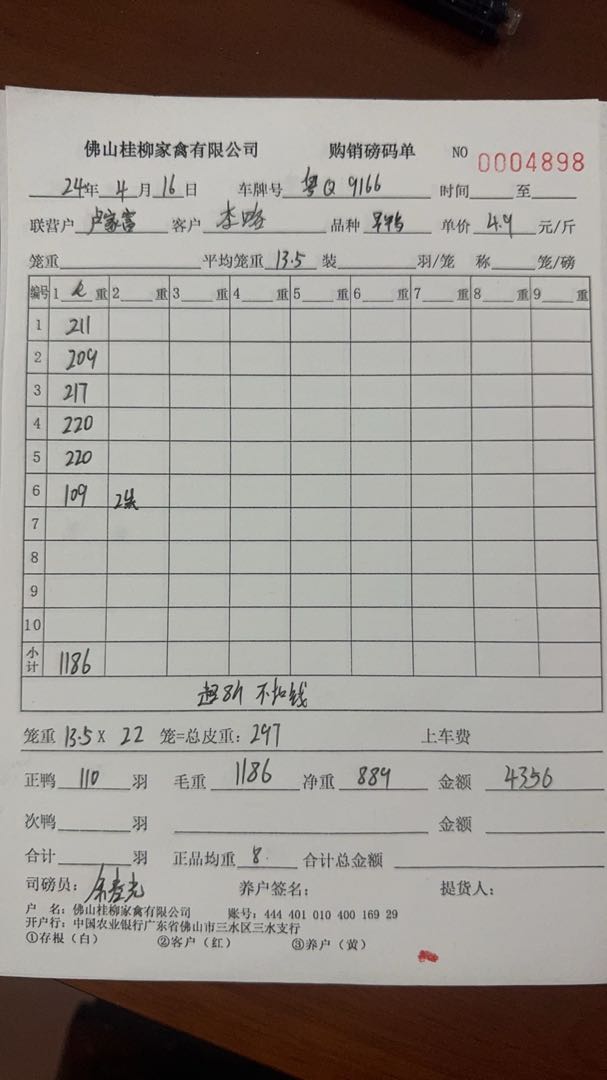 佛山桂柳家禽有限公司 购销磅码单 NO 0004898
24年 4月 16日 车牌号 粤Q 9166 时间 至
联营户 卢家富 客户 李路 品种 单价 4.9 元/斤
笼重 平均笼重 13.5 装 羽/笼 称 笼/磅
编号 1 重 2 重 3 重 4 重 5 重 6 重 7 重 8 重 9 重
1 211
2 209
3 217
4 220
5 220
6 109 2笼
7
8
9
10
小计 1186
超8斤 不扣钱
笼重 13.5 X 22 笼=总皮重: 297 上车费
正鸭 110 羽 毛重 1186 净重 889 金额 4356
次鸭 羽 金额
合计 羽 正品均重 8. 合计总金额
司磅员: 养户签名: 提货人:
户 名: 佛山桂柳家禽有限公司 账号: 444 401 010 400 169 29
开户行: 中国农业银行广东省佛山市三水区三水支行
①存根(白) ②客户(红) ③养户(黄)